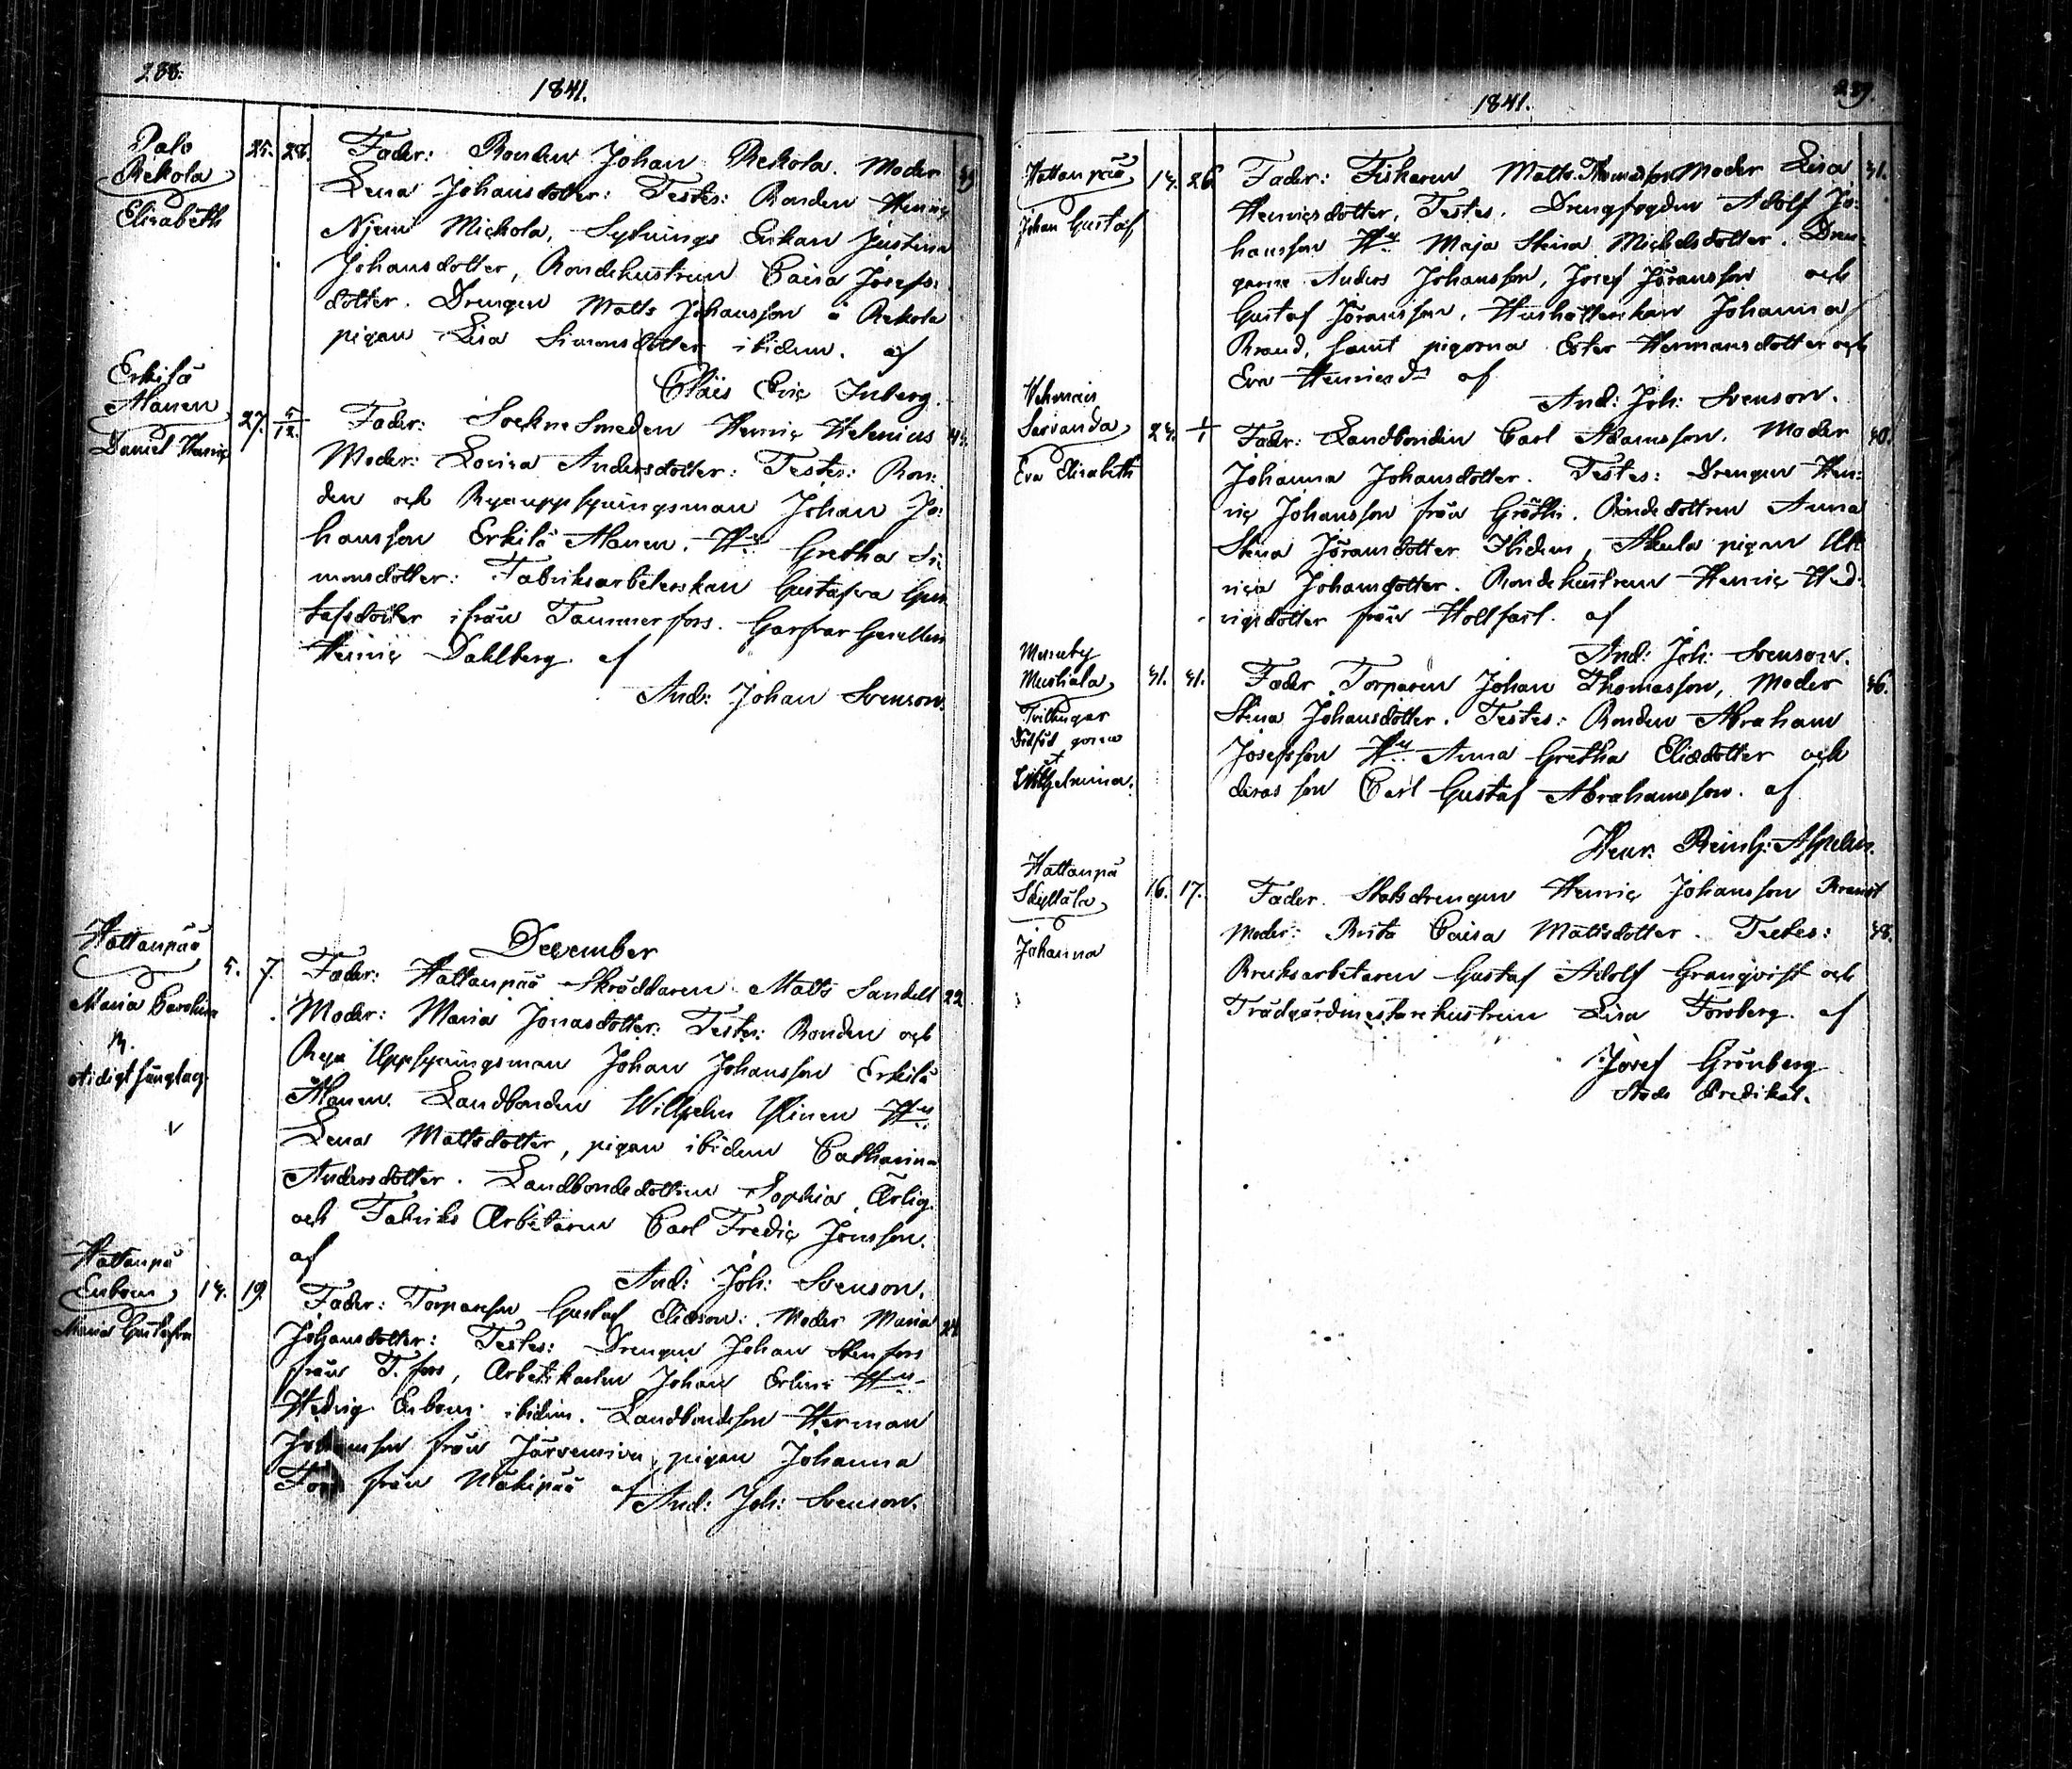 288.
1841.
Palo
Rekola
Elisabeth
25. 28.
Fader: Bonden Johan Rekola. Moder
Lena Johansdotter: Testes: Bonden Henric
Njemi Mickola, Sytnings Enkan Justina
Johansdotter, Bondehustrun Caisa Josefs:
dotter. Drengen Matts Johansson å Rekola
pigan Lisa Simonsdotter ibidem. af
Claës Eric Inberg.
Erkilä
Alanen
Daniel Henric
27. 5/12.
Fader: SockneSmeden Henric Helenius
Moder: Lovisa Andersdotter: Testes: Bon:
den och Ryauppsyningsman Johan Jo:
hansson Erkilä Alanen. Hu Gretha Si:
monsdotter: Fabriksarbeterskan Gustafva Gus
tafsdotter ifrån Tammerfors. Garfvar Gesellen
Henric Dahlberg. af
And: Johan Svenson.
December
Hattanpää
Maria Carolina
5. 7.
Fader: Hattanpää Skräddaren Matts Sandell 22
Moder: Maria Jonasdotter: Testes: Bonden och
Rya Uppsyningsman Johan Johansson Erkilä
Alanen. Landbonden Wilhelm Ylinen Hu
Lena Mattsdotter, pigan ibidem Catharina
Andersdotter. Landbondedottren Sophia Ärlig
och Fabriks Arbetaren Carl Fredic Jonsson.
af
And: Joh: Svenson.
Hattanpä
Enbom
Maria Gustafva
14. 19.
Fader: Torparen Gustaf Eliæson: Moder Maria 24
Johansdotter: Testes: Drengen Johan Stenfors
från T. fors, Arbetskarlen Johan Hu
Hedvig Enbom ibidem. Landbondeson Herman
Johansson från Järvensivu, pigan Johanna
från Mäkipää af And: Joh: Svenson.
1841.
289.
Hattanpää
Johan Gustaf
14. 26.
Fader: Fiskaren Matts Thomasson Moder Lisa 41.
Henricsdotter. Testes. Drengfogden Adolf Jo:
hansson Hu Maja Stina Michelsdotter. Dren:
garne Anders Johansson, Josef Jöransson och
Gustaf Jöransson, Hushållerskan Johanna
Brand, samt pigorna Ester Hermansdotter och
Eva Henricsdr af
And: Joh: Svenson.
Vehmais
Sarvanda
Eva Elisabeth
24. 1/1
Fader: Landbonden Carl Adamsson. Moder 40.
Johanna Johansdotter. Testes: Drengen Hen:
ric Johansson från Gröthi. Bondedottren Anna
Stina Jöransdotter Ibidem, Akula pigan Ul
rica Johansdotter. Bondehustrun Henric Hed:
vigsdotter från Holtfast. af
And: Joh: Svenson.
Messuby
Mustiala
Tvillingar
Vilhelmina.
31. 31.
Fader Torparen Johan Thomasson, Moder 36.
Stina Johansdotter. Testes: Bonden Abraham
Josefsson Hu Anna Gretha Eliædotter och
deras son Carl Gustaf Abrahamsson. af
Henr: Reinh: Aspelin.
Hattanpä
Skyttälä
Johanna
16. 17.
Fader. Statsdrengen Henric Johansson Brandt
Moder: Brita Caisa Mattsdotter. Testes: 38.
Bruksarbetaren Gustaf Adolf Granqvist och
Trädgårdmestarehustrun Lisa Forsberg. af
Josef Grönberg
Stads Predikat.